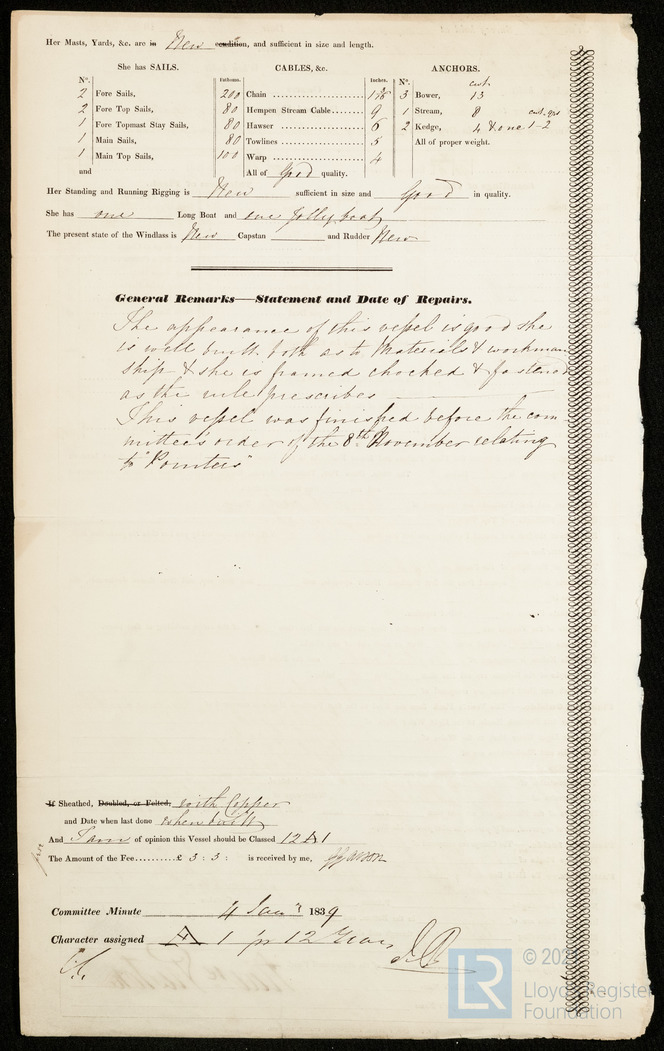 Her Masts, Yards, &c. are in New condition, and sufficient in size and length.
She has SAILS. CABLES, &c. ANCHORS.
No. Fathoms. Inches. No. cwt
2 Fore Sails, 200 Chain 3 Bower, 13
2 Fore Top Sails, 80 Hempen Stream Cable 9 1 Stream, 8 cwt. qrs
1 Fore Topmast Stay Sails, 80 Hawser 6 2 Kedge, 4 & one 1-2
1 Main Sails, 80 Towlines 5 All of proper weight.
1 Main Top Sails, 100 Warp 4
and All of good quality.
Her Standing and Running Rigging is New sufficient in size and Good in quality.
She has one Long Boat and one Jolly boat
The present state of the Windlass is New Capstan and Rudder New
General Remarks—Statement and Date of Repairs.
The appearance of this vessel is good she
is well built both as to Materials & workman
ship & she is framed chocked & fastened
as the rule prescribes
This vessel was finished before the com-
mittee's order of the 8th November relating
to "Pointers"
If Sheathed, Doubled, or Felted, with Copper
and Date when last done when built
And I am of opinion this Vessel should be Classed 12 A 1
The Amount of the Fee £ 3 : 3 : is received by me,
Committee Minute 4 Jany 1839
Character assigned A 1 pr 12 Years
LR
Lloyd's Register
Foundation